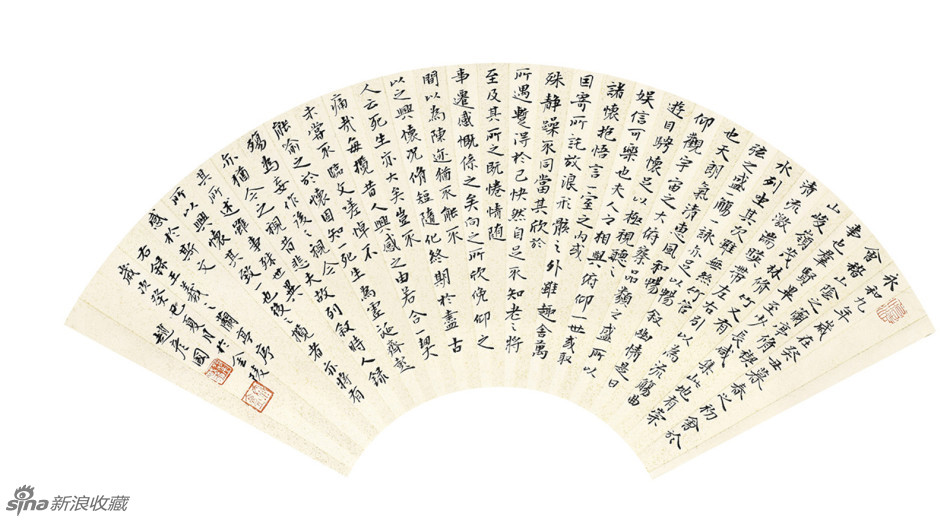 永和九年歲在癸丑暮春之初會於
會稽山陰之蘭亭脩禊
事也羣賢畢至少長咸集此地有崇
山峻嶺茂林脩竹又有
清流激湍暎帶左右引以為流觴曲
水列坐其次雖無絲竹管
弦之盛一觴一詠亦足以暢敘幽情是日
也天朗氣清惠風和暢
仰觀宇宙之大俯察品類之盛所以
遊目騁懷足以極視聽之
娛信可樂也夫人之相與俯仰一世或取
諸懷抱悟言一室之內或
因寄所託放浪形骸之外雖趣舍萬
殊靜躁不同當其欣於
所遇蹔得於己快然自足不知老之將
至及其所之既惓情隨
事遷感慨係之矣向之所欣俛仰之
間以為陳迹猶不能不
以之興懷況脩短隨化終期於盡古
人云死生亦大矣豈不
痛哉每攬昔人興感之由若合一契
未嘗不臨文嗟悼不
能喻之於懷固知一死生為虛誕齊彭
殤為妄作後之視今
亦猶今之視昔悲夫故列敘時人錄
其所述雖世殊事異
所以興懷其致一也後之攬者亦將有
感於斯文
右錄王羲之蘭亭序
歲次癸巳夏月於金陵
趙彥國
sina新浪收藏